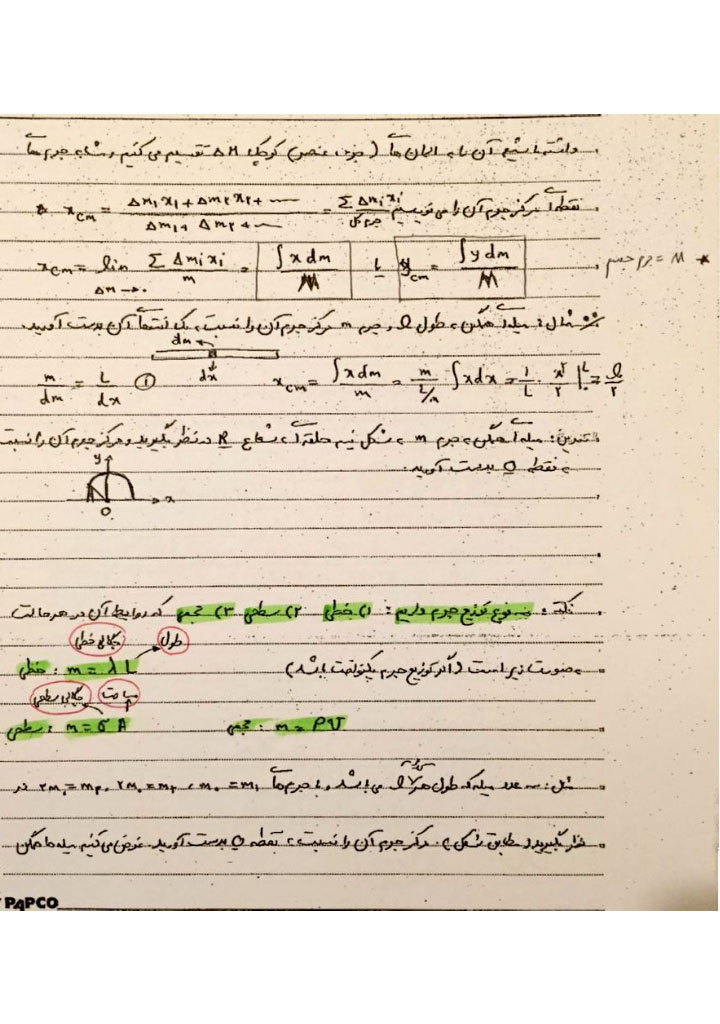 داشته باشیم آن را به المان های (جزء، عنصر) کوچک ΔM تقسیم می کنیم و مشابه جرم های
نقطه ای مرکز جرم آن را می نویسیم x_cm = (Δm₁x₁ + Δm₂x₂ + ...) / (Δm₁ + Δm₂ + ...) = ΣΔmᵢxᵢ / جرم کل
x_cm = lim Δm→۰ ΣΔmᵢxᵢ / m = ∫x dm / M یا y_cm = ∫y dm / M
* M = جرم جسم
مثال: میله ای همگن به طول l و جرم m مرکز جرم آن را نسبت به یک انتهای آن بدست آورید.
dm
dx
m/dm = L/dx ① x_cm = ∫x dm / m = ∫x dx = 1/L · x²/۲ |₀ᴸ = l/۲
تمرین: میله ای همگن به جرم m به شکل نیم حلقه ای به شعاع R در نظر بگیرید و مرکز جرم آن را نسبت
به نقطه O بدست آورید.
y
x
O
نکته: سه نوع توزیع جرم داریم: ۱) خطی ۲) سطحی ۳) حجمی که روابط آن در هر حالت
چگالی خطی طول
به صورت زیر است (اگر توزیع جرم یکنواخت باشد) خطی: m = λL
چگالی سطحی مساحت
حجمی: m = ρV سطحی: m = σA
مثل: سه عدد میله که طول هر یک l می باشد و با جرم های m₀ = m₁ ، ۲m₀ = m₂ ، ۳m₀ = m₃ در
نظر بگیرید مطابق شکل مرکز جرم آن را نسبت به نقطه O بدست آورید. فرض می کنیم میله ها همگن
PAPCO